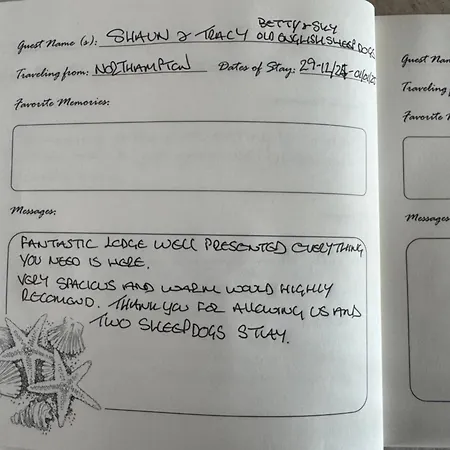 BETTY & SKY
Guest Name (s): SHAUN & TRACY OLD ENGLISH SHEEP DOGS
Traveling from: NORTHAMPTON Dates of Stay: 29-12/25-
Favorite Memories:
Messages:
FANTASTIC LODGE WELL PRESENTED EVERYTHING
YOU NEED IS HERE.
VERY SPACIOUS AND WARM WOULD HIGHLY
RECOMEND. THANK YOU FOR ALLOWING US AND
TWO SHEEPDOGS STAY.
Guest Nam
Traveling f
Favorite M
Messages